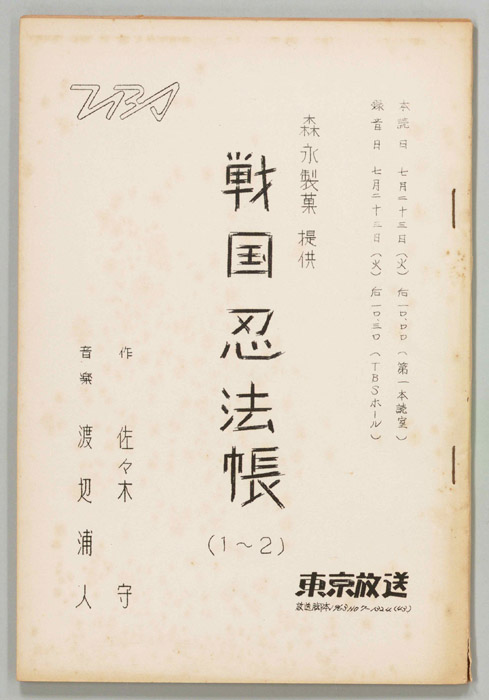 本読日 七月二十三日(火)后一〇.〇〇(第一本読室)
録音日 七月二十三日(火)后一〇.三〇(TBSホール)
森永製菓 提供
戦国忍法帳
(1~2)
作 佐々木 守
音楽 渡辺浦人
TBS
東京放送